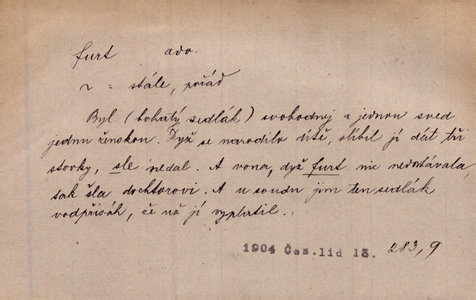 furt adv.
~ = stále, pořád
Byl (bohatý sedlák) svobodnej a jednou sved
jednu ženskou. Dyž se narodilo dítě, slíbil jí dát tři
stovky, ale nedal. A vona, dyž furt nic nedostávala,
tak šla doktorovi. A u soudu jim ten sedlák
vodpřisáh, že už jí vyplatil.
1904 Čes. lid 13. 283, 9